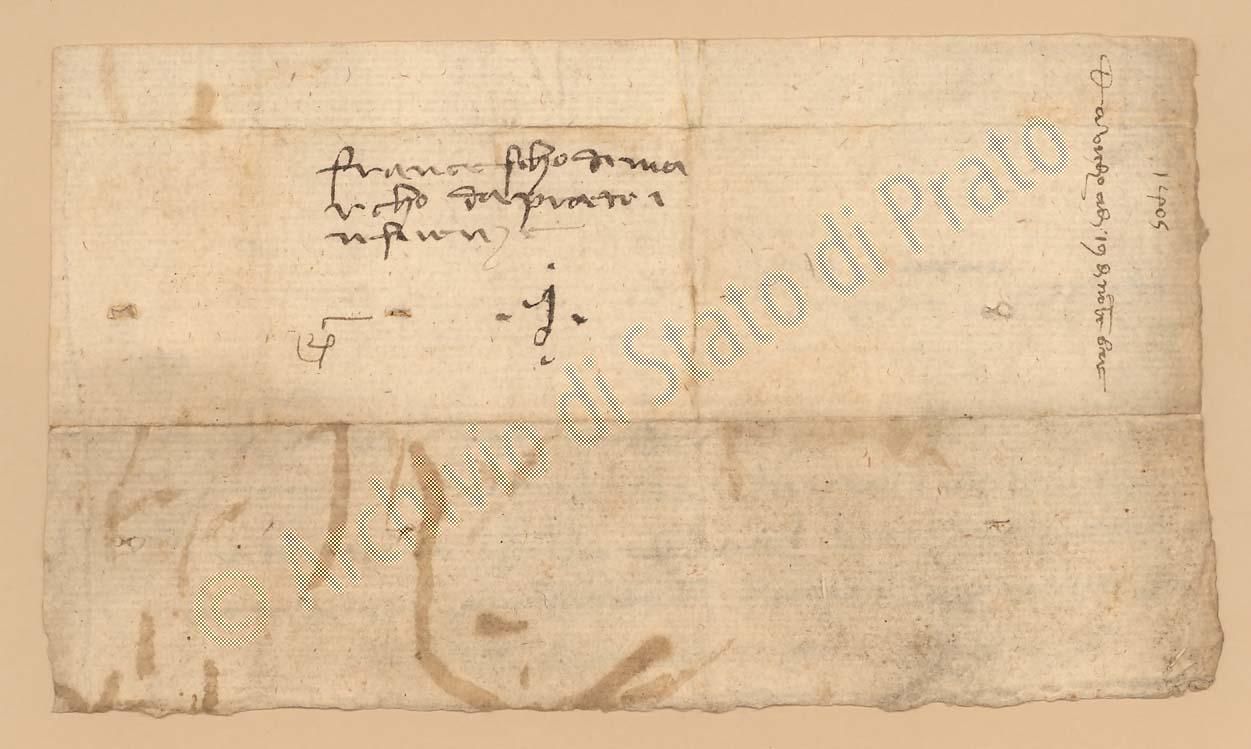 francescho di ma
rcho da prato i
n firenze
1405
Da vinegia adì 19 di novenbre
© Archivio di Stato di Prato